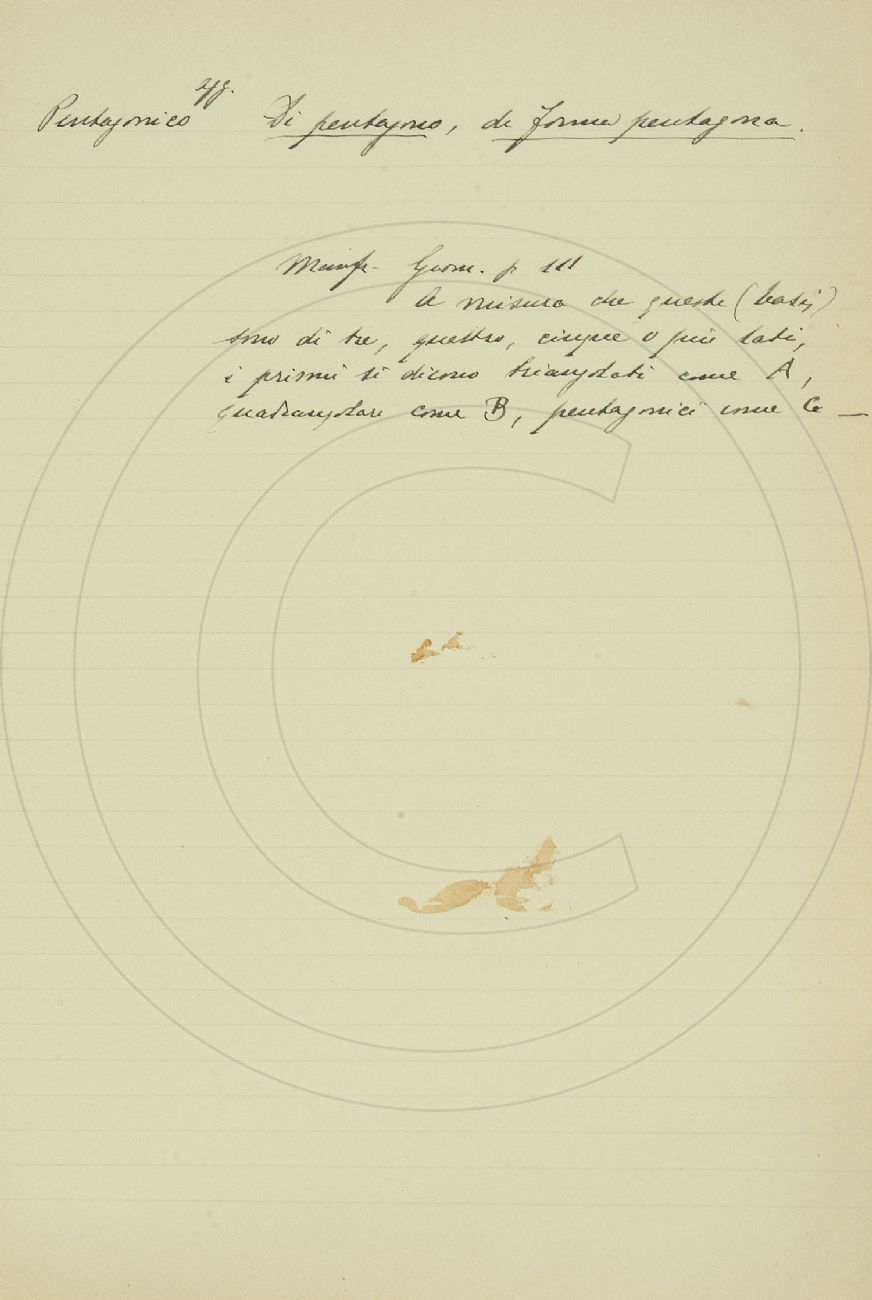 Pentagonico agg. Di pentagono, di forma pentagona.
Manfr. Geom. p 111
A misura che queste (basi)
sono di tre, quattro, cinque o più lati,
i prismi si dicono triangolati come A,
quadrangolari come B, pentagonici come C —